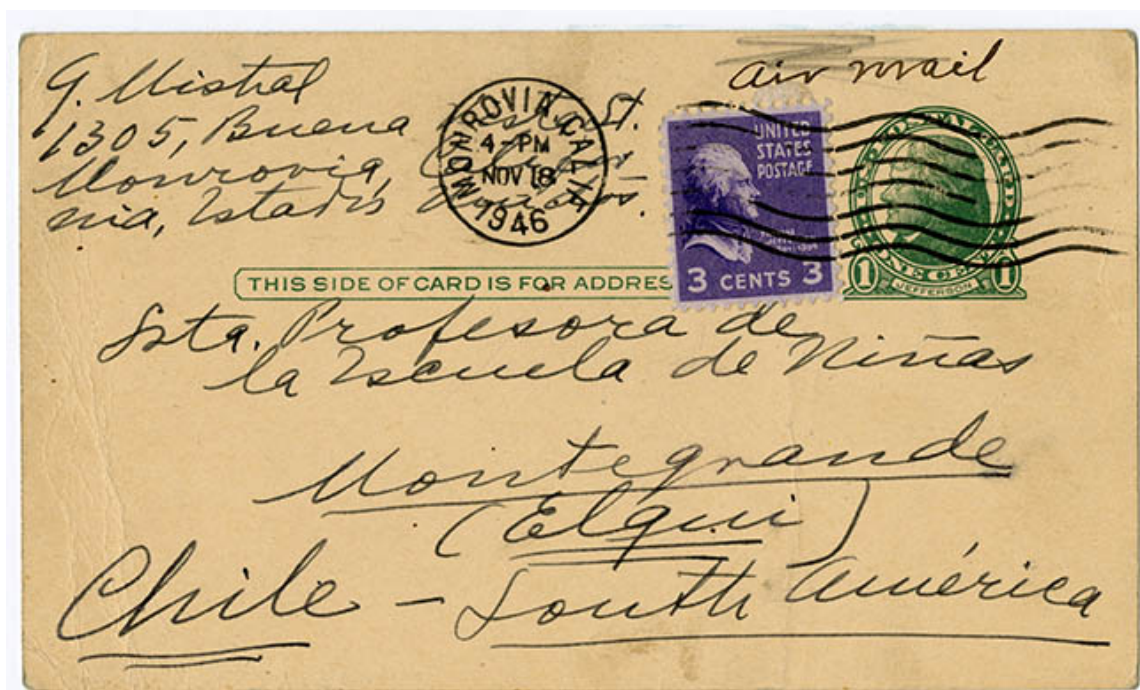 G. Mistral
1305, Buena St.
Monrovia,
nia, Estados
air mail
MONROVIA, CALIF.
4-PM
NOV 18
1946
UNITED
STATES
POSTAGE
3 CENTS 3
1 1
JEFFERSON
THIS SIDE OF CARD IS FOR ADDRES
Srta. Profesora de
la Escuela de Niñas
Montegrande
(Elqui)
Chile - South América